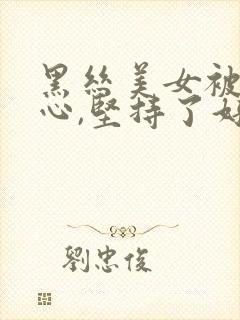 黑丝美女被
心,坚持了好
劉忠俊